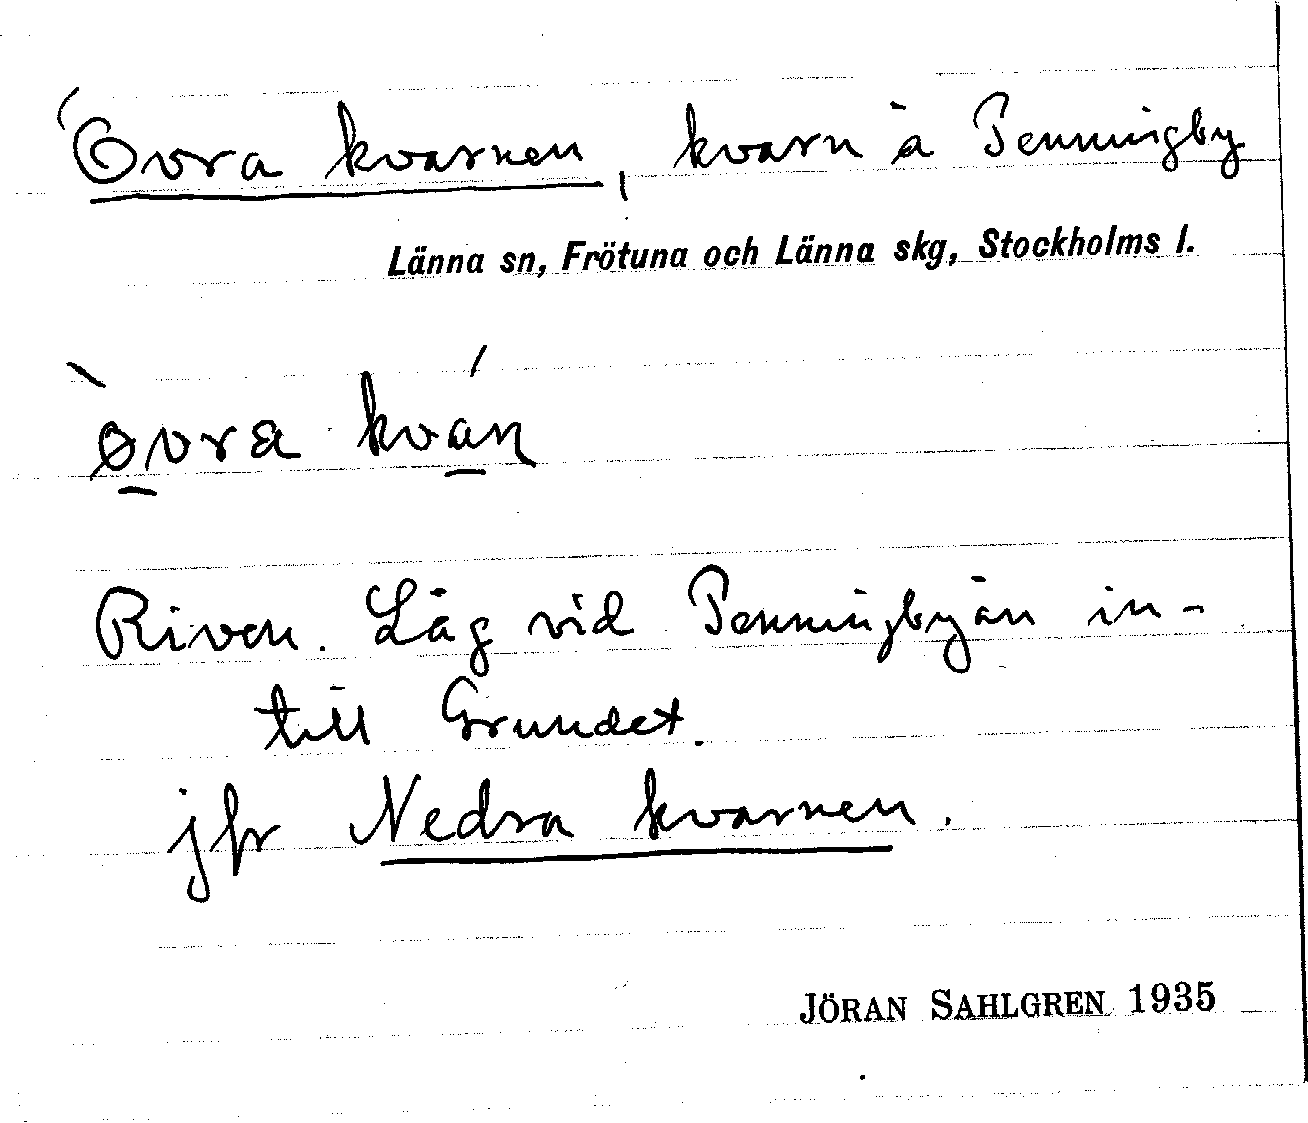 Övra kvarnen, kvarn å Penningby
Länna sn, Frötuna och Länna skg, Stockholms l.
ø̀vra kván
Riven. Låg vid Penningbyån in-
till Grundet.
jfr Nedra kvarnen.
JÖRAN SAHLGREN 1935